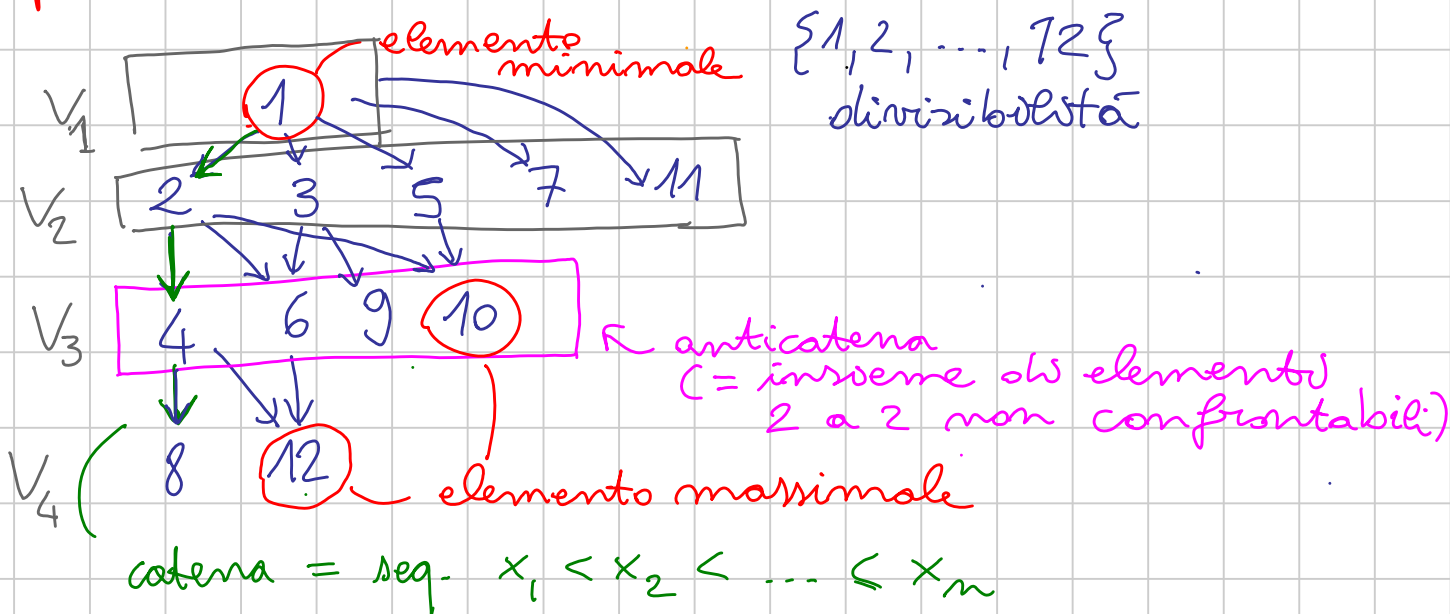 elemento
minimale
{1, 2, ..., 12}
divisibilità
V1
1
V2
2 3 5 7 11
V3
4 6 9 10
anticatena
(= insieme di elementi
2 a 2 non confrontabili)
V4
8 12
elemento massimale
catena = seq. x1 < x2 < .... < xn